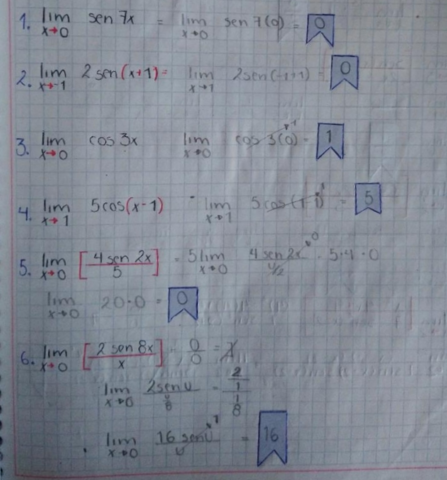 1. lim x→0 sen 7x = lim x→0 sen 7(0) = 0
2. lim x→-1 2 sen(x+1) = lim x→1 2sen(-1+1) = 0
3. lim x→0 cos 3x lim x→0 cos 3(0) = 1
4. lim x→1 5cos(x-1) lim x→1 5 cos(1-1) = 5
5. lim x→0 [4 sen 2x / 5] = 5 lim x→0 4 sen 2x / u/2 = 5·4·0
lim x→0 20·0 = 0
6. lim x→0 [2 sen 8x / x] = 0/0 =
lim x→0 2sen u / u/8 = 2/1 / 1/8
lim x→0 16 sen u / u = 16